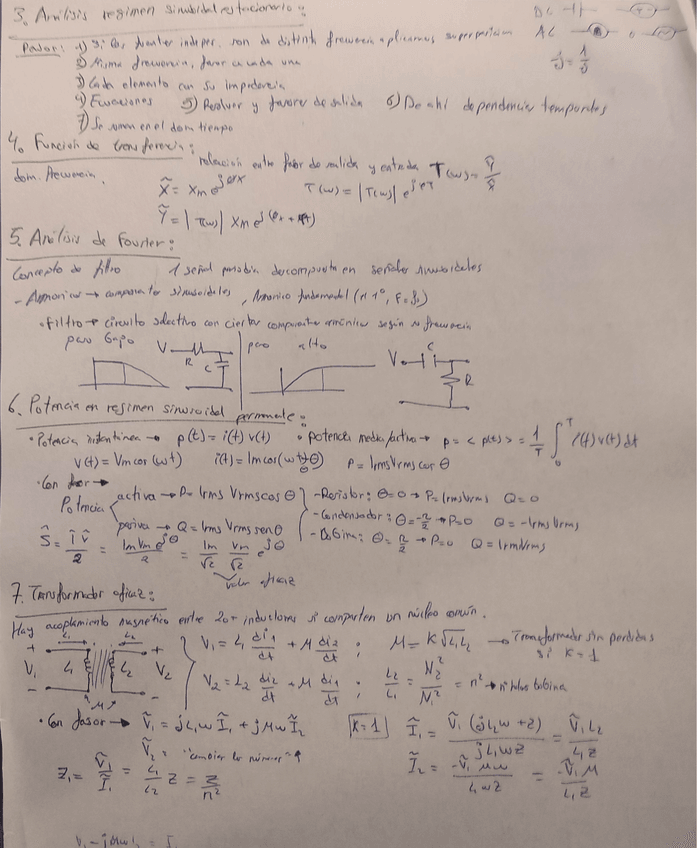 3. Análisis regimen sinusoidal estacionario:
DC
AC
Pasos: 1) Si las fuentes indepen. son de distinta frecuencia aplicamos superposición
-j = 1/j
2) Misma frecuencia, fasor a cada una
3) Cada elemento con su impedancia
4) Ecuaciones 5) Resolver y fasores de salida 6) De ahí dependencias temporales
7) Se suman en el dom tiempo
4. Función de transferencia:
relacion entre fasor de salida y entrada T(ω) = Ỹ/X̃
dom. frecuencia. X̃ = Xm e^jφx T(ω) = |T(ω)| e^jφT
Ỹ = |T(ω)| Xm e^j(φx + φT)
5. Análisis de Fourier:
Concepto de filtro 1 señal periódica descompuesta en señales sinusoidales
- Armonicos → componentes sinusoidales, Armonico fundamental (n 1º, f = f₁)
• Filtro → circuito selectivo con ciertas componentes armónicas según su frecuencia
paso bajo V R C paso alto V C R
6. Potencia en regimen sinusoidal permanente:
• Potencia instantánea → p(t) = i(t) v(t) • potencia media/activa → P = < p(t) > = 1/T ∫₀ᵀ i(t) v(t) dt
v(t) = Vm cos(ωt) i(t) = Im cos(ωt - θ) P = Irms Vrms cos θ
• Con fasor →
Potencia activa → P = Irms Vrms cos θ - Resistor: θ = 0 → P = Irms Vrms Q = 0
- Condensador: θ = -π/2 → P = 0 Q = -Irms Vrms
pasiva → Q = Irms Vrms sen θ - Bobina: θ = π/2 → P = 0 Q = Irms Vrms
Ŝ = Î V̂/2 = Im Vm e^jθ/2 = Im/√2 Vm/√2 e^jθ
valor eficaz
7. Transformador eficaz:
Hay acoplamiento magnético entre 2 o + inductores si comparten un núcleo común.
+ I₁ I₂ + V₁ = L₁ di₁/dt + M di₂/dt ; M = K√L₁L₂ → Transformador sin perdidas
si K = 1
V₁ L₁ L₂ V₂
- M - V₂ = L₂ di₂/dt + M di₁/dt ; L₂/L₁ = N₂²/N₁² = n² → nº hilos bobina
• Con fasor → Ṽ₁ = jL₁ω Ĩ₁ + jMω Ĩ₂ K = 1 Ĩ₁ = Ṽ₁ (jL₂ω + Z)/jL₁ωZ = Ṽ₁ L₂/L₁Z
Ṽ₂ = "cambiar los números"
Z₁ = Ṽ₁/Ĩ₁ = L₁/L₂ Z = Z/n² Ĩ₂ = -Ṽ₁ Mω/L₁ωZ = -Ṽ₁ M/L₁Z